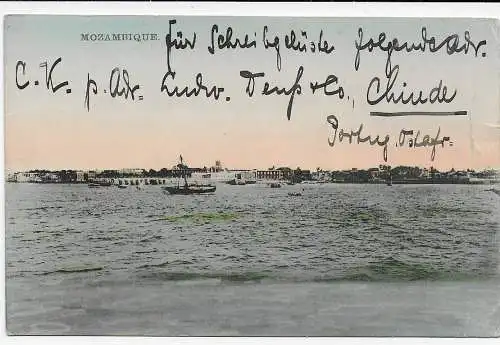 MOZAMBIQUE.
für Schreibgelüste folgende Adr.
C. K. p. Adr. Ludw. Deuss & Co., Chinde
Portug. Ostafr.